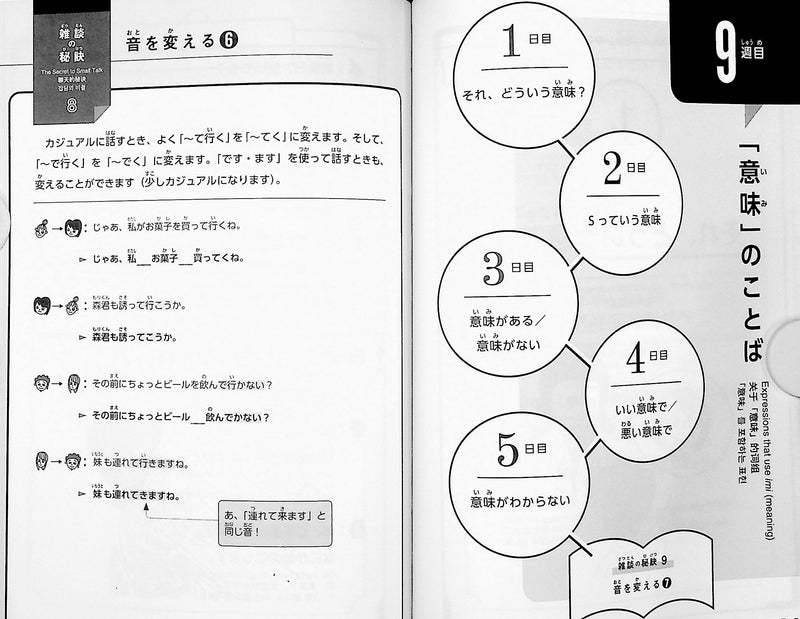 雑談
の
秘訣
The Secret to Small Talk
聊天的秘诀
잡담의 비결
8
音を変える❻
カジュアルに話すとき、よく「〜て行く」を「〜てく」に変えます。そして、
「〜で行く」を「〜でく」に変えます。「です・ます」を使って話すときも、
変えることができます（少しカジュアルになります）。
→：じゃあ、私がお菓子を買って行くね。
▷ じゃあ、私__お菓子__買ってくね。
→：森君も誘って行こうか。
▷ 森君も誘ってこうか。
→：その前にちょっとビールを飲んで行かない？
▷ その前にちょっとビール__飲んでかない？
→：妹も連れて行きますね。
▷ 妹も連れてきますね。
あ、「連れて来ます」と
同じ音！
9週目
「意味」のことば
Expressions that use imi (meaning)
关于「意味」的词组
「意味」를 포함하는 표현
1日目
それ、どういう意味？
2日目
Sっていう意味
3日目
意味がある／
意味がない
4日目
いい意味で／
悪い意味で
5日目
意味がわからない
雑談の秘訣 9
音を変える❼